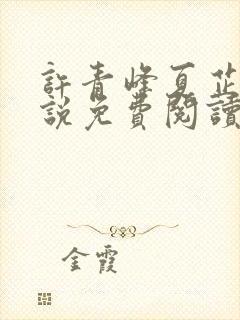 許青峰夏芷
說免費閱讀
金霞